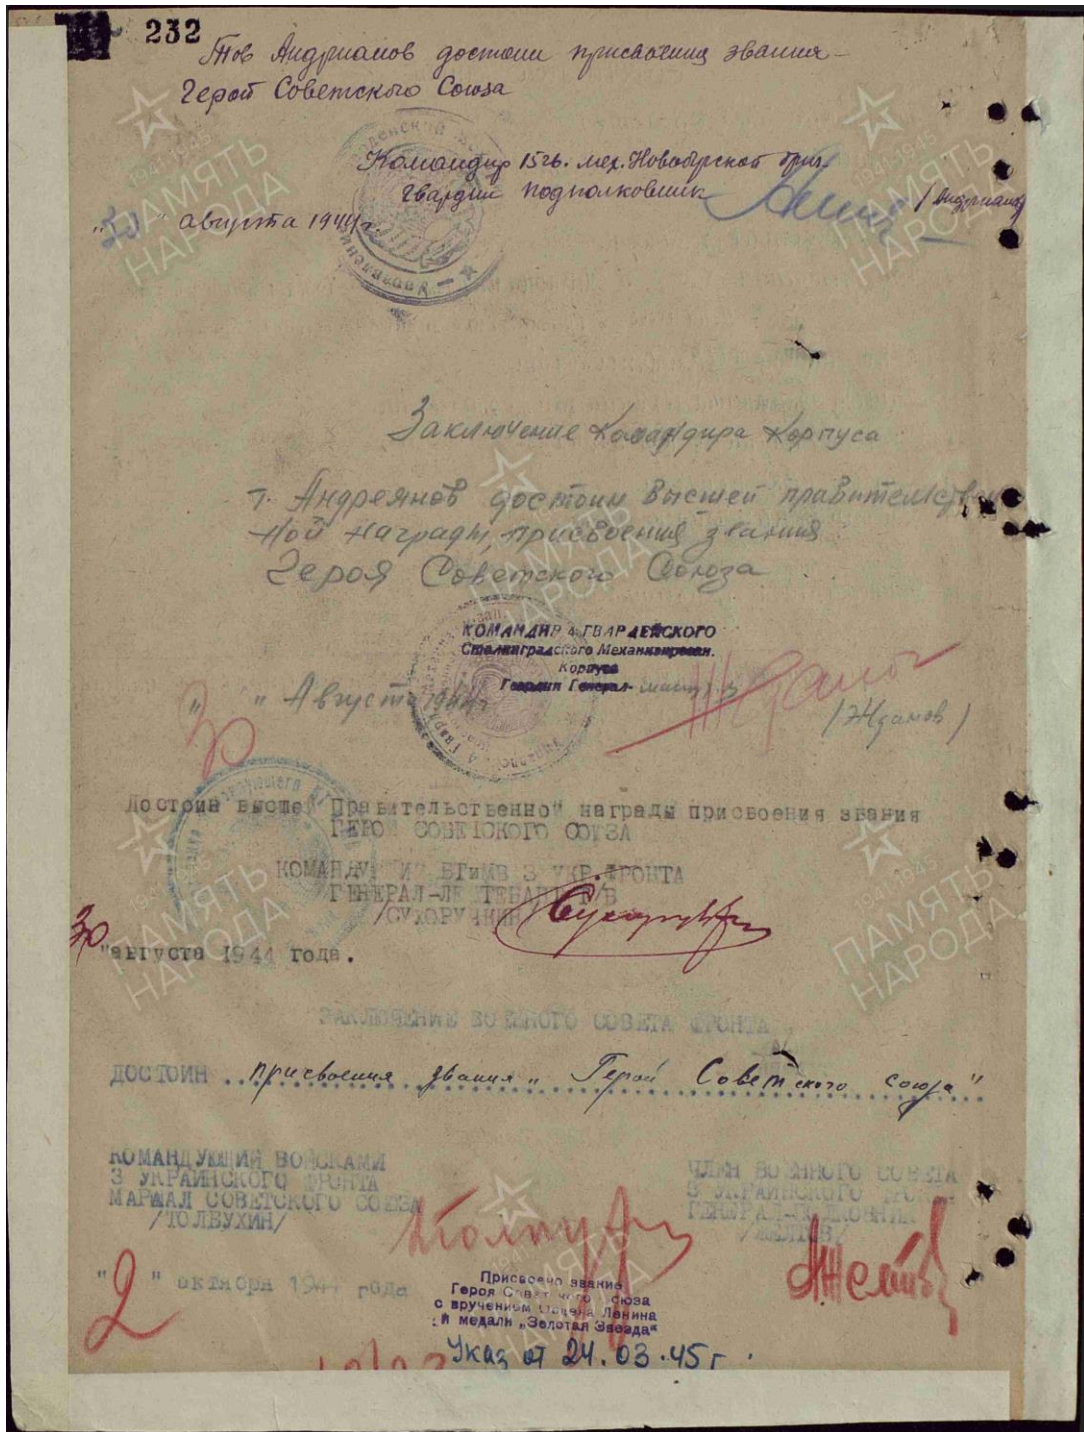 232
Тов Андрианов достоин присвоения звания
Герой Советского Союза
Командир 15 гв. мех. Новобугской бриг.
Гвардии подполковник /Андрианов
"30" августа 1944 г.
Заключение Командира Корпуса
т. Андреянов достоин высшей правительствен
ной награды, присвоения звания
Героя Советского Союза
КОМАНДИР 4 ГВАРДЕЙСКОГО
Сталинградского Механизирован.
Корпуса
Гвардии Генерал-
"30" Августа 1944 г.
Жданов
/Жданов/
Достоин высшей Правительственной награды присвоения звания
ГЕРОЙ СОВЕТСКОГО СОЮЗА
КОМАНДУЮЩИЙ БТиМВ 3 УКР.ФРОНТА
ГЕНЕРАЛ-ЛЕЙТЕНАНТ Т/В
/СУХОРУЧКИН
30 "августа 1944 года.
ЗАКЛЮЧЕНИЕ ВОЕННОГО СОВЕТА ФРОНТА
ДОСТОИН присвоения звания „Герой Советского союза"
КОМАНДУЮЩИЙ ВОЙСКАМИ
3 УКРАИНСКОГО ФРОНТА
МАРШАЛ СОВЕТСКОГО СОЮЗА
/ТОЛБУХИН/
ЧЛЕН ВОЕННОГО СОВЕТА
3 УКРАИНСКОГО ФРОНТА
ГЕНЕРАЛ-ПОЛКОВНИК
/ЖЕЛТОВ/
"2" октября 1944 года
Присвоено звание
Героя Советского Союза
с вручением Ордена Ленина
и медали „Золотая Звезда"
Указ от 24.03.45 г.
ПАМЯТЬ
НАРОДА